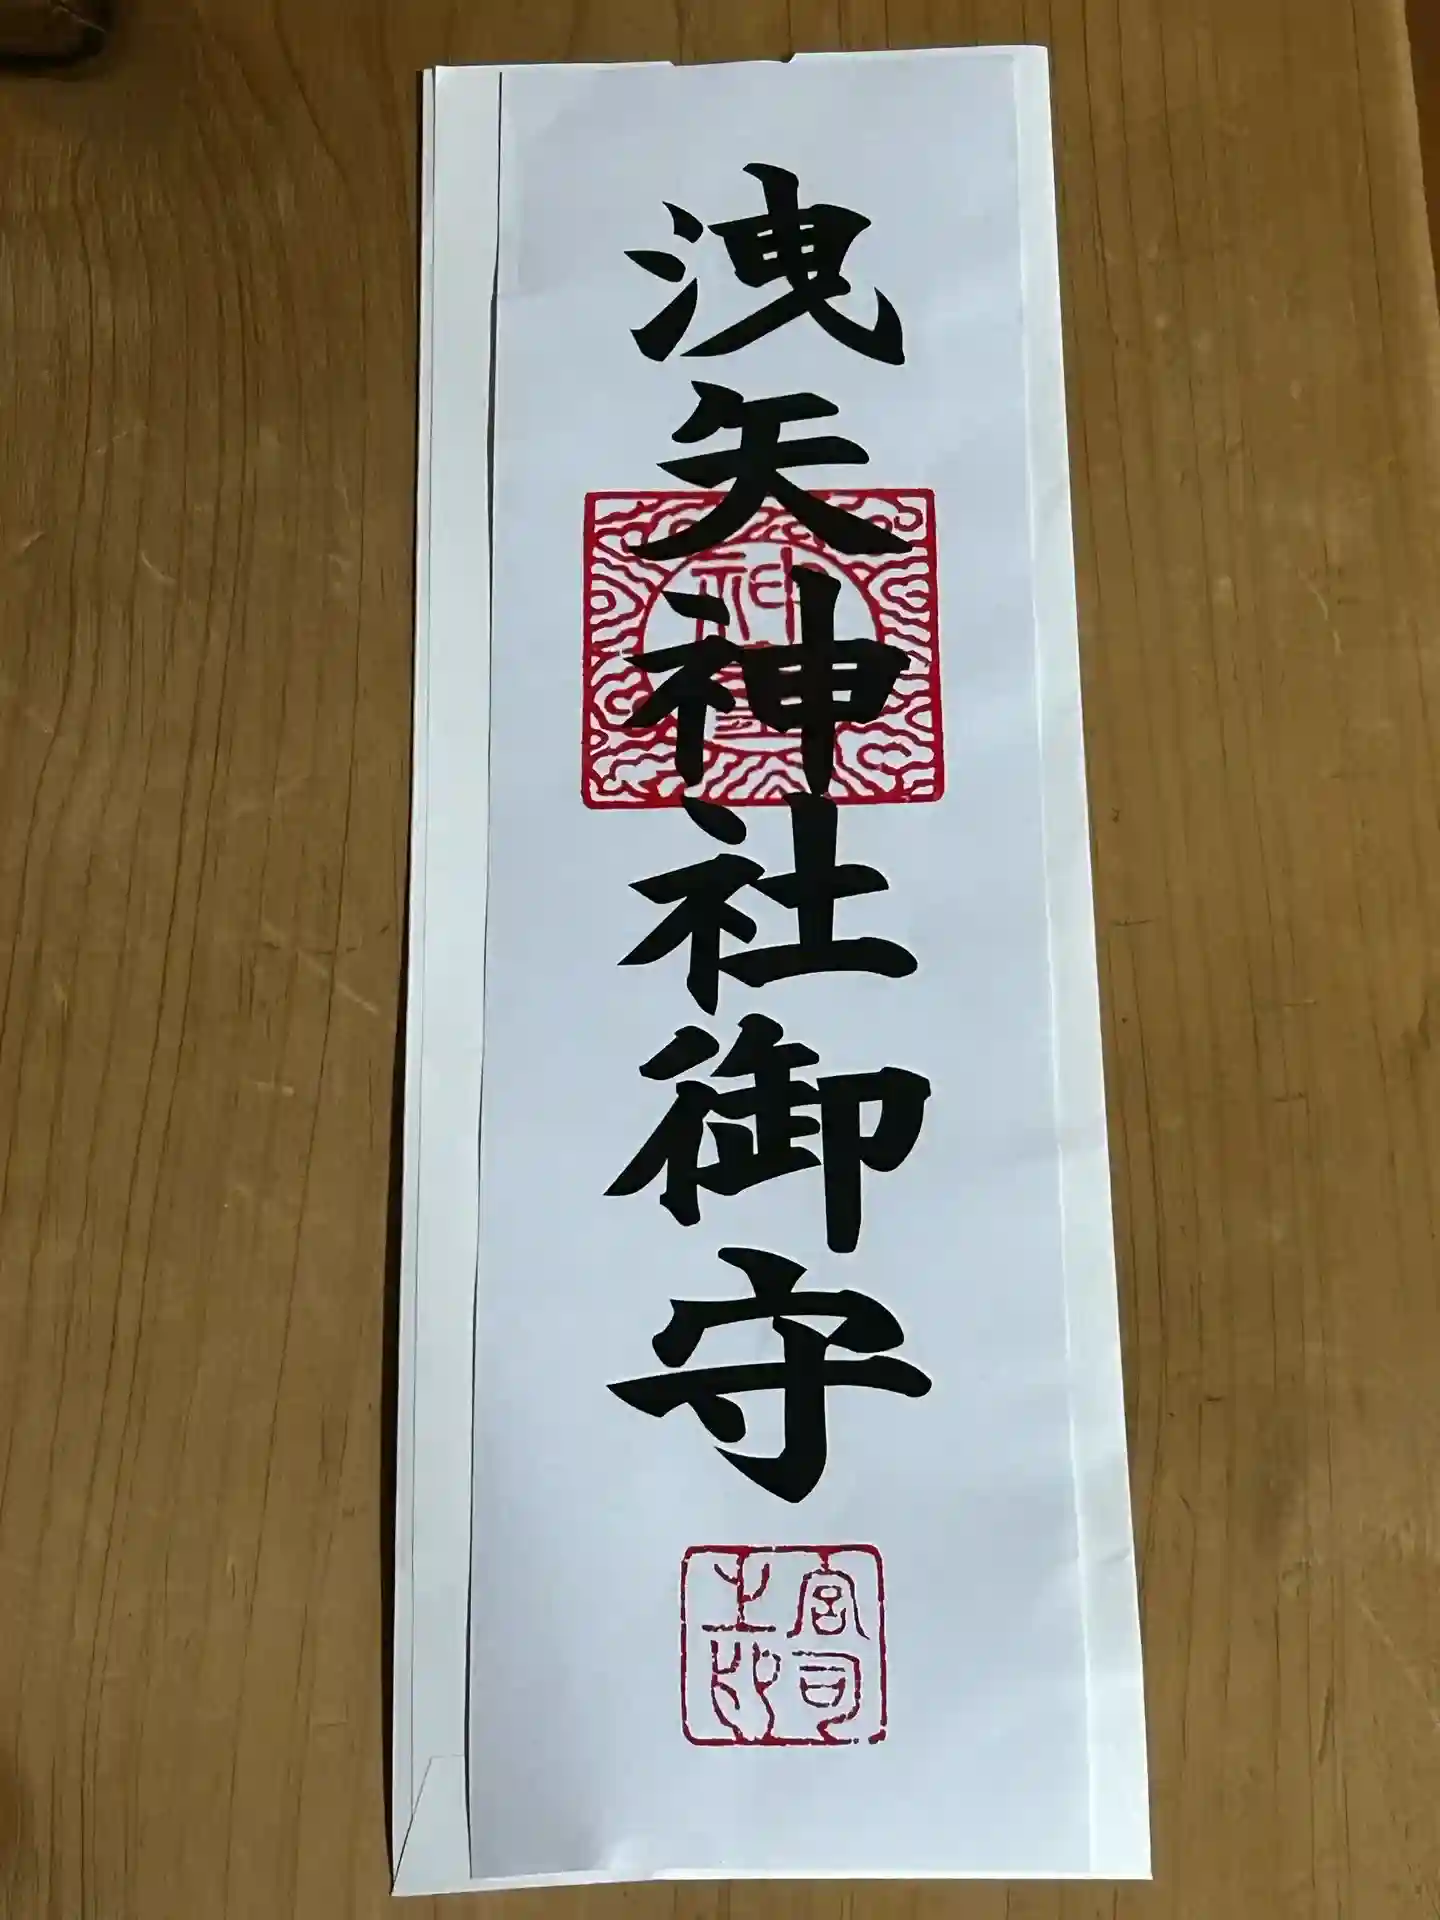 洩矢神社御守
宮司之印